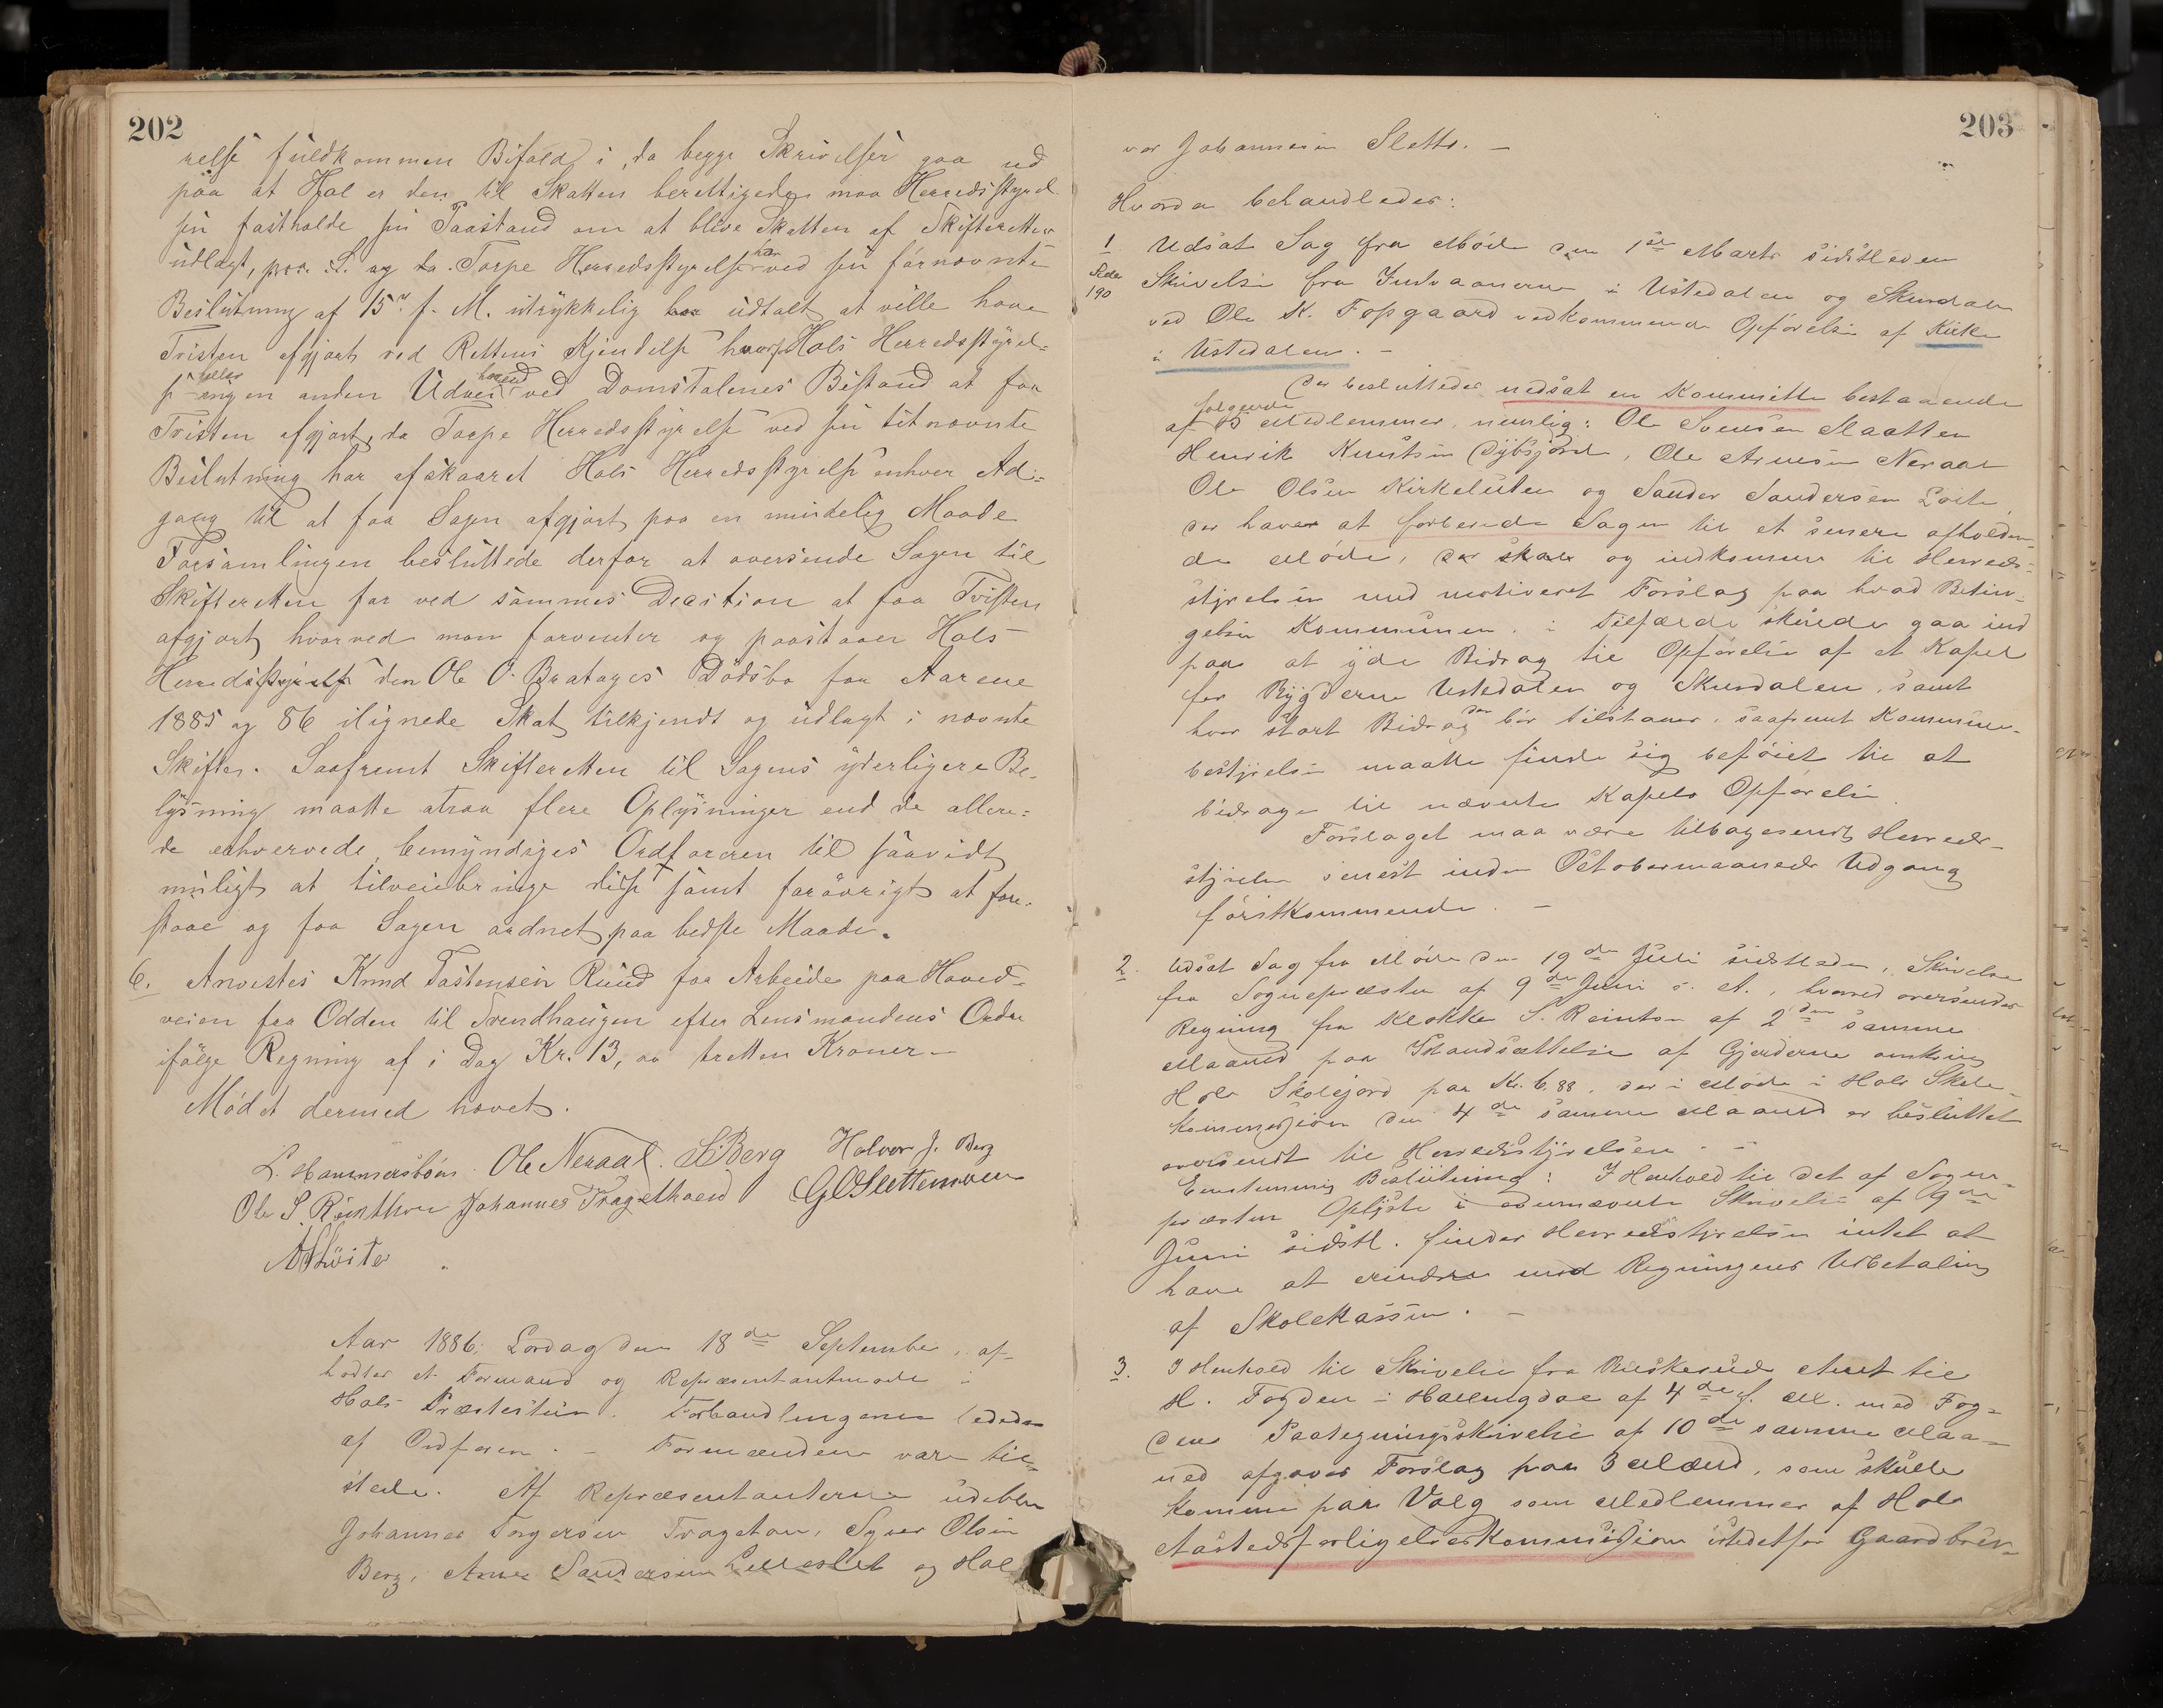 202
relse fuldkommen Bifald i, da begge Skrivelser gaa ud
paa at Hol er den til Skatten berettigede, maa Herredsstyrel-
sen fastholde sin Paastand om at blive Skatten af Skifteretten
udlagt, og da Torpe Herredsstyrelse har ved sin fornævnte
Beslutning af 15de f. M. utrykkelig har udtalt at ville have
Tvisten afgjort ved Rettens Kjendelse hvorfor Hols Herredsstyrel-
se heller ingen anden Udvei havd ved Domstolenes Bistand at faa
Tvisten afgjort, da Torpe Herredsstyrelse ved sin titnævnte
Beslutning har afskaaret Hols Herredsstyrelse enhver Ad-
gang til at faa Sagen afgjort paa en mindelig Maade
Forsamlingen besluttede derfor at oversende Sagen til
Skifteretten for ved sammes Decition at faa Tvisten
afgjort, hvorved man forventer og paastaaer Hols
Herredsstyrelse den Ole O. Bratages Dødsbo for Aarene
1885 og 86 ilignede Skat tilkjendt og udlagt i nævnte
Skifte. Saafremt Skifteretten til Sagens yderligere Be-
lysning maatte atraa flere Oplysninger end de allere-
de erhvervede, bemyndiges Ordføreren til saavidt
muligt at tilveiebringe disse samt forøvrigt at fore-
staae og faa Sagen ordnet paa bedste Maade.
6. Anvistes Knud Tostensen Ruud for Arbeide paa Hoved-
veien fra Odden til Trendhaugen efter Lensmandens Ordre
ifølge Regning af i Dag Kr. 13, oo tretten Kroner –
Mødet dermed hævet.
L. Hammersbøen Ole Neraal. S. Berg Halvor J. Berg
Ole S. Reinthon Johannes Tragethoend G O Slettemoen
Aar 1886, Lørdag den 18de September, af-
holdtes et Formand og Repræsentantmøde i
Hols Præstestue. Forhandlingerne lededes
af Ordføren. – Formændene vare til-
stede. Af Repræsentanterne udebleve
Johannes Torgersen Trageton, Syver Olsen
Berg, Arne Sandersen Lilleslet og Hal-
203
vor Johannesen Sletto. –
Hvorda behandledes:
1 Udsat Sag fra Møde den 1ste Marts sidstleden
Side
190
Skrivelse fra Indvaanerne i Ustedalen og Skurdalen
ved Ole K. Fosgaard vedkommende Opførelse af Kirke
i Ustedalen. –
Der besluttedes nedsat en Kommitte bestaaende
af følgende 5 Medlemmer, nemlig: Ole Svensen Slaatten
Henrik Knutsen Dybsjord, Ole Arnesen Neraal
Ole Olsen Kirkeluten og Sander Sandersen Løite
der haver at forberede Sagen til et senere afholden-
de Møde, der skal og indkomme til Herreds-
styrelsen med motiveret Forslag paa hvad Betin-
gelser Kommunen i Tilfælde skulde gaa ind
paa at yde Bidrag til Opførelse af et Kapel
for Bygderne Ustedalen og Skurdalen, samt
hvor stort Bidrag der bør tilstaaes, saafremt Kommune-
bestyrelsen maatte finde sig beføiet til at
bidrage til nævnte Kapels Opførelse.
Forslaget maa være tilbagesendt Herreds-
styrelsen senest inden Octobermaaneds Udgang
førstkommende. –
2. Udsat Sag fra Møde den 19de Juli sidstleden, Skrivelse
fra Sognepræsten af 9de Juni s. A., hvorved oversendes
Regning fra Klokker S. Reinton af 2den samme
Maaned paa Istandsættelse af Gjerderne omkring
Hols Skolejord paa Kr. 6.88, der i Møde i Hols Skole-
kommission den 4de samme Maaned er besluttet
oversendt til Herredsstyrelsen. –
Eenstemmig Beslutning: I Henhold til det af Sogne-
præsten Oplyste i ovennævnte Skrivelse af 9de
Juni sidstl. finder Herredsstyrelsen intet at
have at erindre mod Regningens Udbetaling
af Skolekassen. –
3. I Henhold til Skrivelse fra Buskeruds Amt til
H. Fogden i Hallingdal af 4de f. M. med Fog-
dens Paategningsskrivelse af 10de samme Maa-
ned afgaves Forslag paa 3 Mænd, som skulle
komme paa Valg som Medlemmer af Hols
Aastedsforligelseskommission istedetfor Gaardbru-